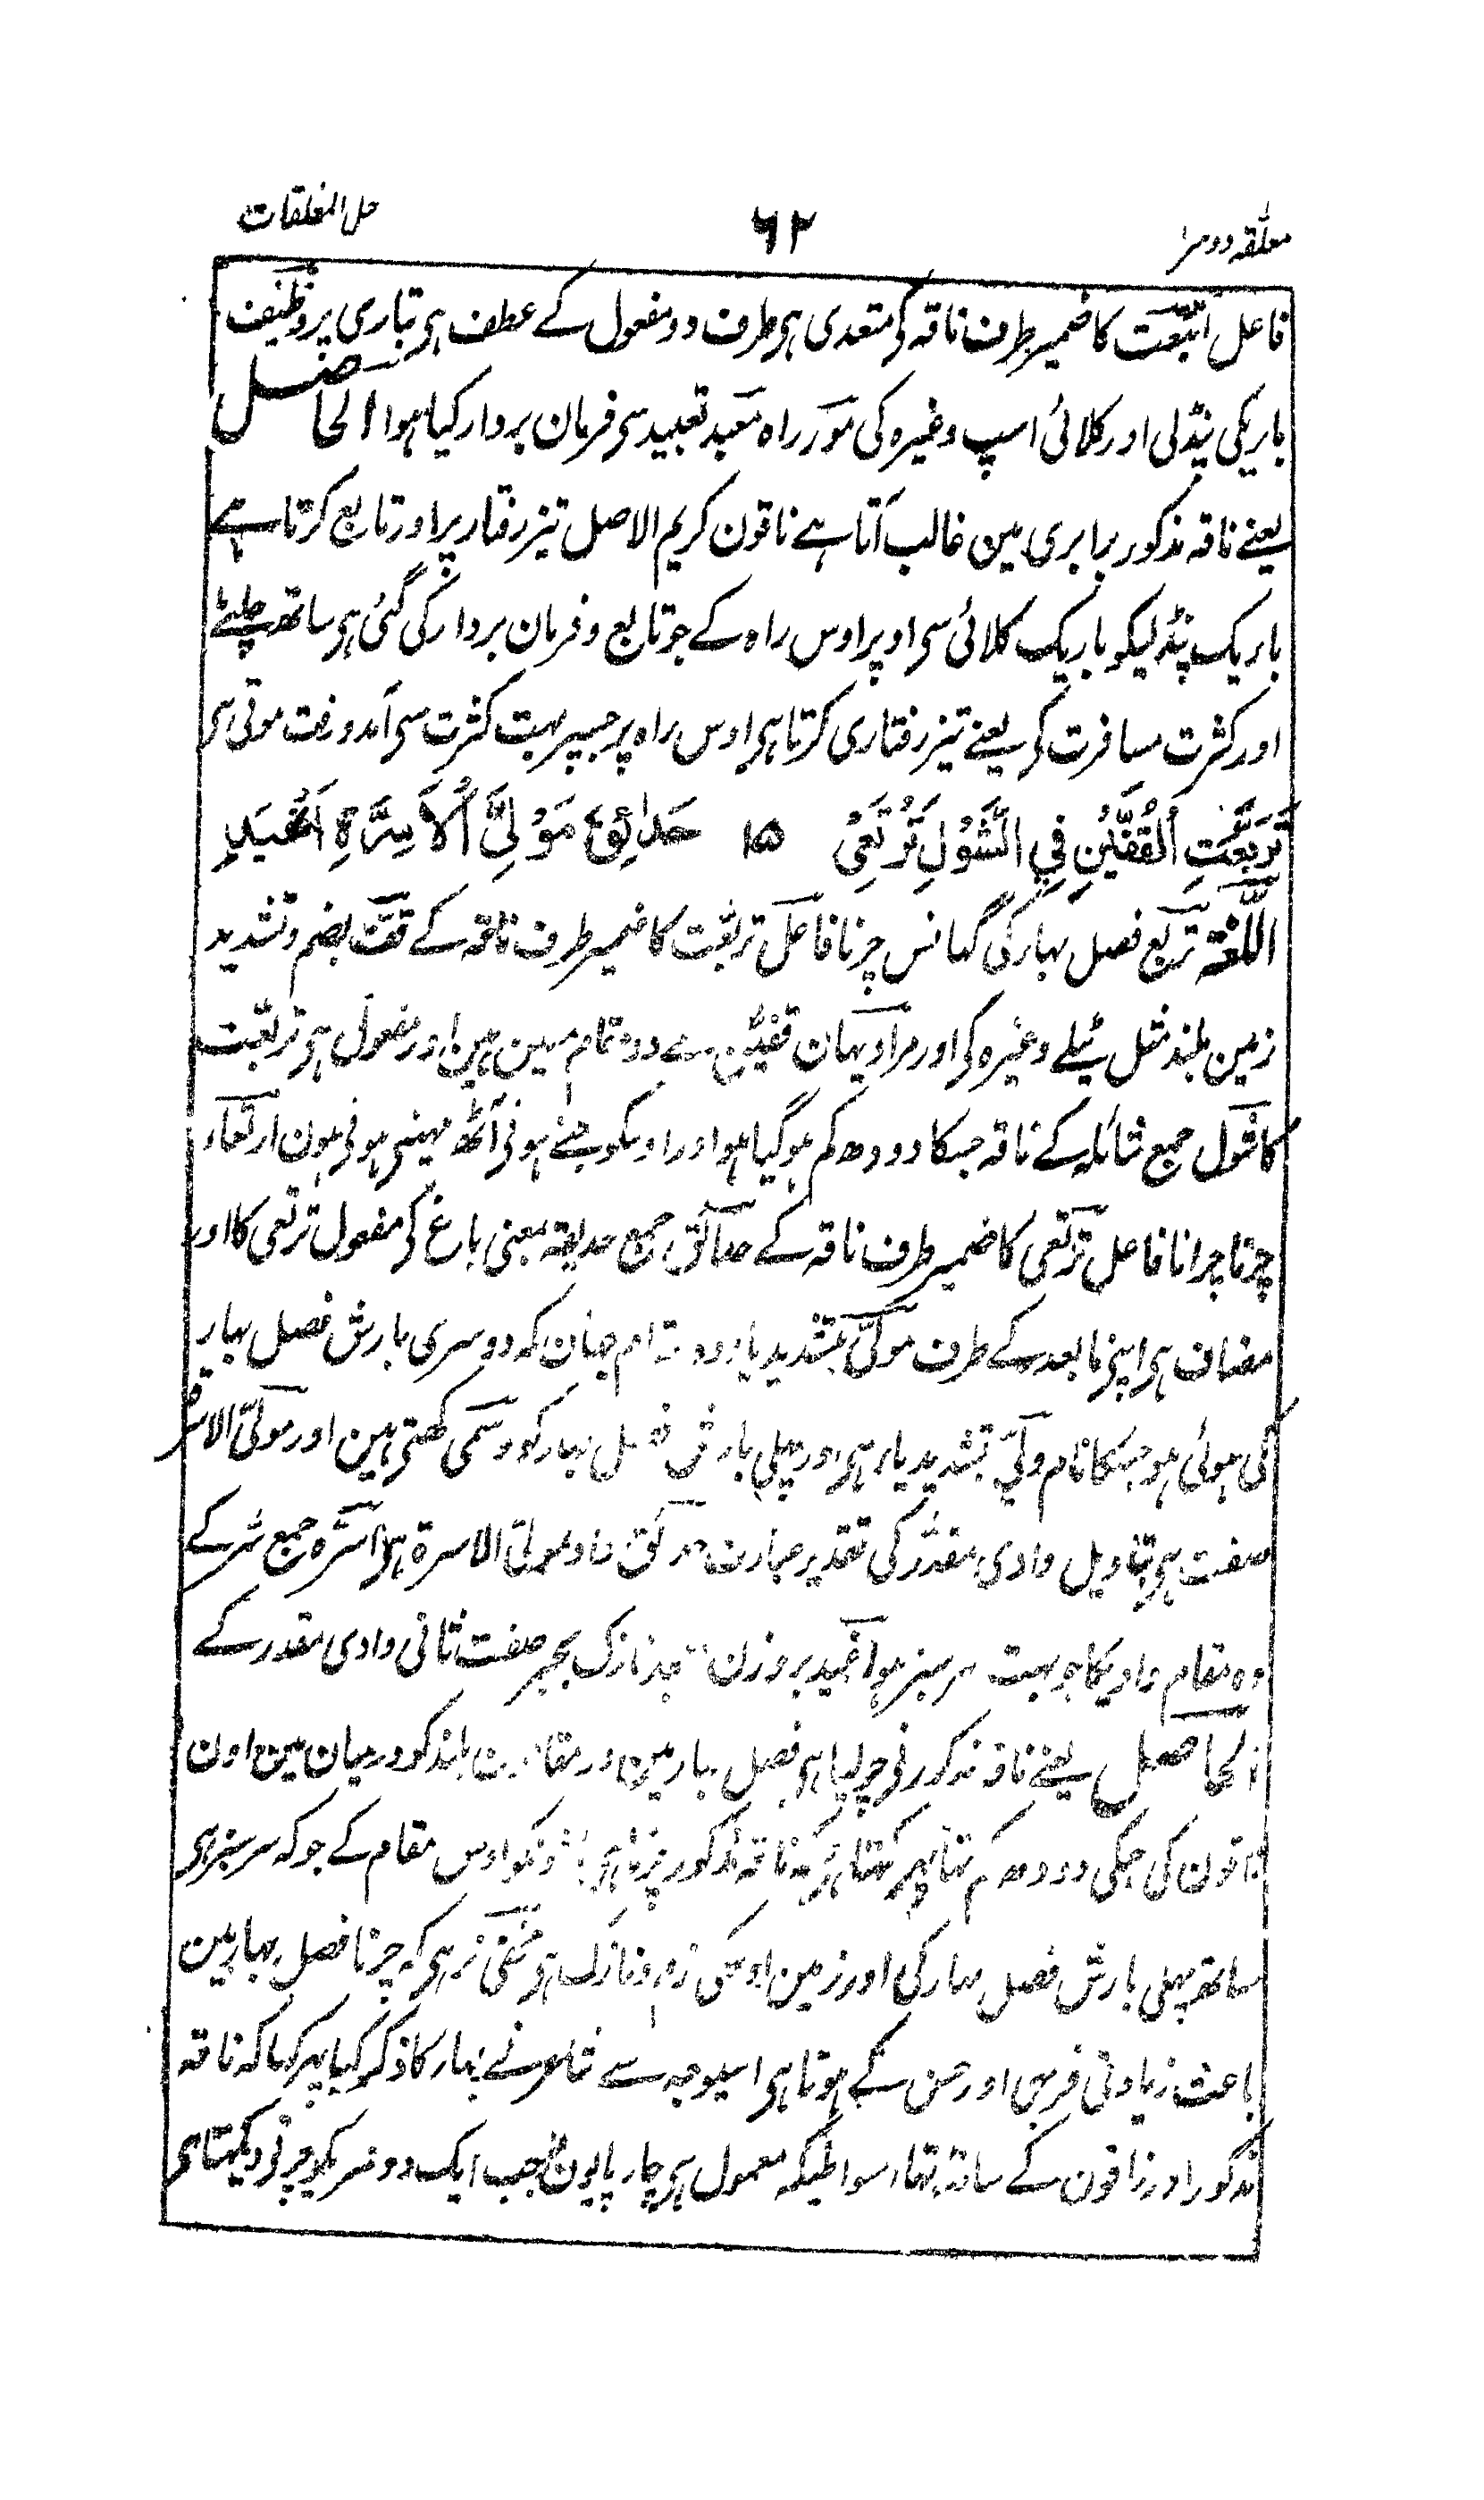 معلقہ دوسرا ۶۲ حل المغلقات
فاعل اتبعت کا ضمیر طرف ناقہ کی متعدی ہی طرف دو مفعول کے عطف ہی تباری پر وظیف
باریکی پنڈلی اور کلائی اسپ وغیرہ کی مَور راہ معبد تعبید سی فرمان بردار کیا ہوا الحاصل
یعنے ناقہ مذکور برابری مین غالب آتا ہے ناقون کریم الاصل تیز رفتار پر اور تابع کرتا ہے
باریک پنڈلیکو باریک کلائی سی اوپر اوس راہ کے جو تابع و فرمان بردار کی گئی ہی ساتھ چلنے
اور کثرت مسافرت کی یعنے تیز رفتاری کرتا ہی اوس راہ پر جسپر بہت کثرت سی آمد و رفت ہوتی ہی
تَرَبَّعَتِ الْقُفَّيْنِ فِي الشَّوْلِ تَرْتَعِيْ ۱۵ حَدَائِقَ مَوْلِيِّ الْأَسِرَّةِ أَغْيَدِ
اللّغۃ تربع فصل بہار کی گہانس چرنا فاعل تربعت کا ضمیر طرف ناقہ کے قف بضم و تشدید
زمین بلند مثل ٹیلے وغیرہ کی اور مراد یہان قفین سے دو مقام معین ہین اور مفعول ہی تربعت
کا شول جمع شائلہ کے ناقہ جسکا دودھ کم ہو گیا ہو اور اوسکو جنے ہوئی آٹھ مہینی ہوئی ہون ارتعاء
چرنا چرانا فاعل ترتعی کا ضمیر طرف ناقہ کے حدائق جمع حدیقہ بمعنی باغ کی مفعول ترتعی کا اور
مضاف ہی اپنی مابعد کے طرف مولی بتشدید یاء وہ مقام جہان کہ دوسری بارش فصل بہار
کی ہوئی ہو جسکا نام ولی بتشدید یاء ہی اور پہلی بارش فصل بہار کو وسمی کہتی ہین اور مولی الاسرۃ
صفت ہی بتاویل وادی مقدر کی تقدیر عبارت حدائق واد مولی الاسرۃ ہی اسرہ جمع سر کے
وہ مقام وادیکا جو بہت سرسبز ہو اغید بروزن نازک بجر صفت ثانی وادی مقدر کے
الحاصل یعنے ناقہ مذکور نی چر لیا ہی فصل بہار مین اور مقامات بلند کو درمیان مین اون
ناقون کی جنکی دودھ کم تہا پہر کہتا ہی کہ ناقہ مذکور چرتا ہی باغونکو اوس مقام کے جو کہ سرسبز ہی
ساتھ پہلی بارش فصل بہار کی اور زمین اوسکی نرم و نازک ہی مخفی نرہی کہ چرنا فصل بہار مین
باعث زیادتی فربہی اور حسن کے ہوتا ہی اسیوجہ سے شاعر نے بہار کا ذکر کیا پہر کہا کہ ناقہ
مذکور اور ناقون کے ساتہ تہا اسواطیکہ معمول ہی چارپایون کا جب ایک دوسریکو چرتی دیکہتا ہی